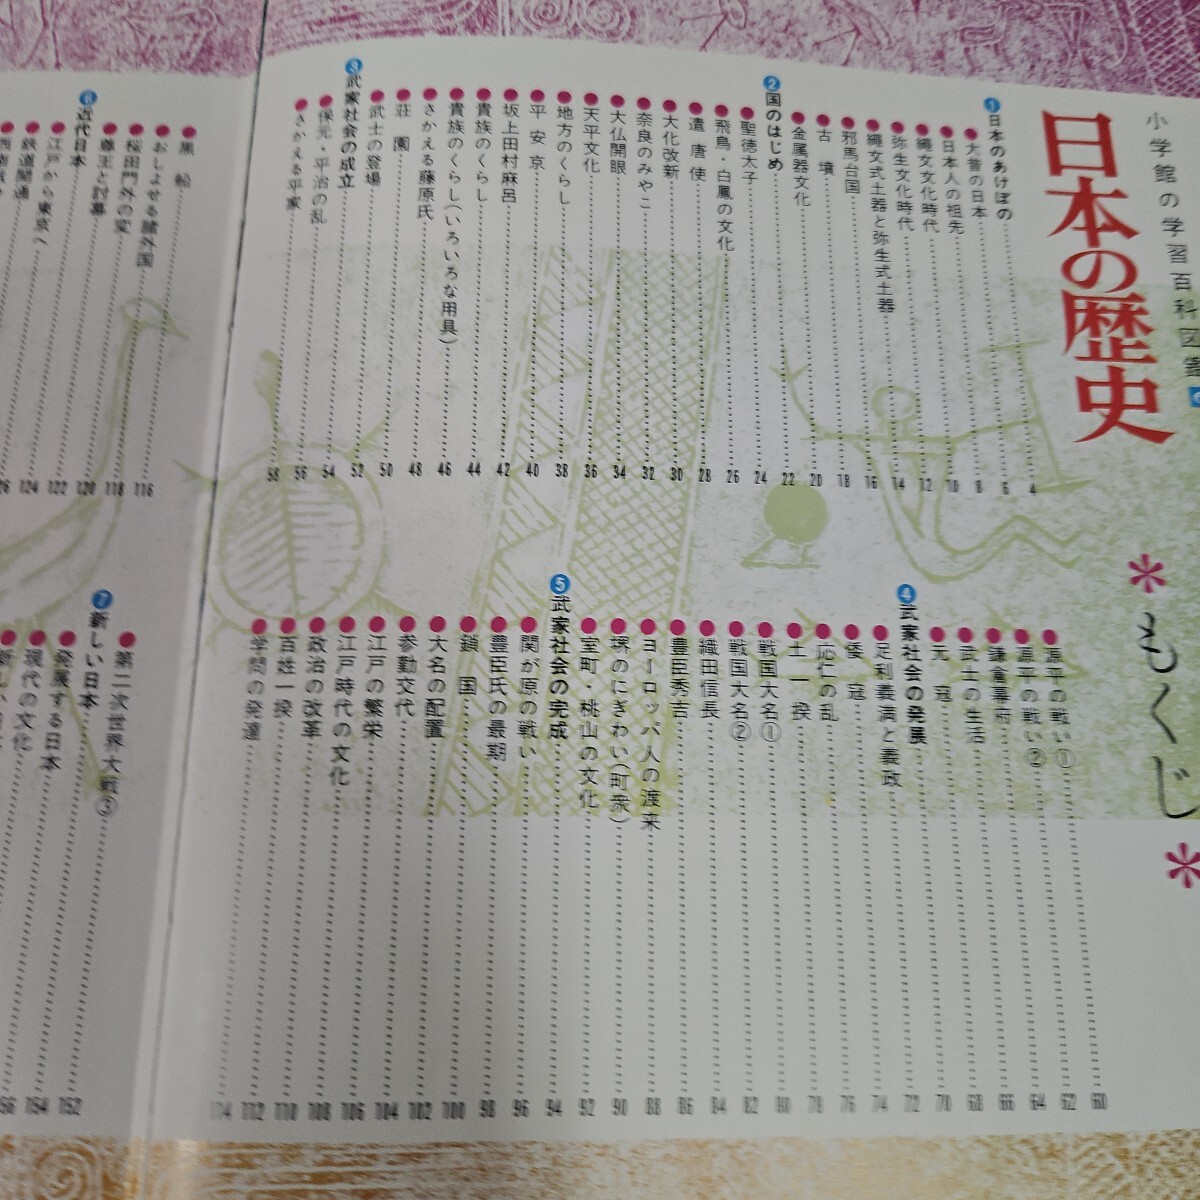 小学館の学習百科図鑑
日本の歴史
*もくじ*
①日本のあけぼの……4
●大昔の日本……6
●日本人の祖先……8
●縄文文化時代……10
●弥生文化時代……12
●縄文式土器と弥生式土器……14
●邪馬台国……16
●古墳……18
●金属器文化……20
②国のはじめ……22
●聖徳太子……24
●飛鳥・白鳳の文化……26
●遣唐使……28
●大化改新……30
●奈良のみやこ……32
●大仏開眼……34
●天平文化……36
●地方のくらし……38
●平安京……40
●坂上田村麻呂……42
●貴族のくらし……44
●貴族のくらし(いろいろな用具)……46
●さかえる藤原氏……48
●荘園……50
●武士の登場……52
③武家社会の成立……54
●保元・平治の乱……56
●さかえる平家……58
●源平の戦い①……60
●源平の戦い②……62
●鎌倉幕府……64
●武士の生活……66
●元寇……68
④武家社会の発展……70
●足利義満と義政……72
●倭寇……74
●応仁の乱……76
●土一揆……78
●戦国大名①……80
●戦国大名②……82
●織田信長……84
●豊臣秀吉……86
●ヨーロッパ人の渡来……88
●堺のにぎわい(町衆)……90
●室町・桃山の文化……92
⑤武家社会の完成……94
●関が原の戦い……96
●豊臣氏の最期……98
●鎖国……100
●大名の配置……102
●参勤交代……104
●江戸の繁栄……106
●江戸時代の文化……108
●政治の改革……110
●百姓一揆……112
●学問の発達……114
●黒船……116
●おしよせる諸外国……118
●桜田門外の変……120
●尊王と討幕……122
⑥近代日本……124
●江戸から東京へ……126
●鉄道開通
●第二次世界大戦③……152
⑦新しい日本……154
●発展する日本……156
●現代の文化